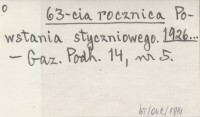 o
63-cia rocznica Po-
wstania styczniowego. 1926...
— Gaz. Podh. 14, nr 5.